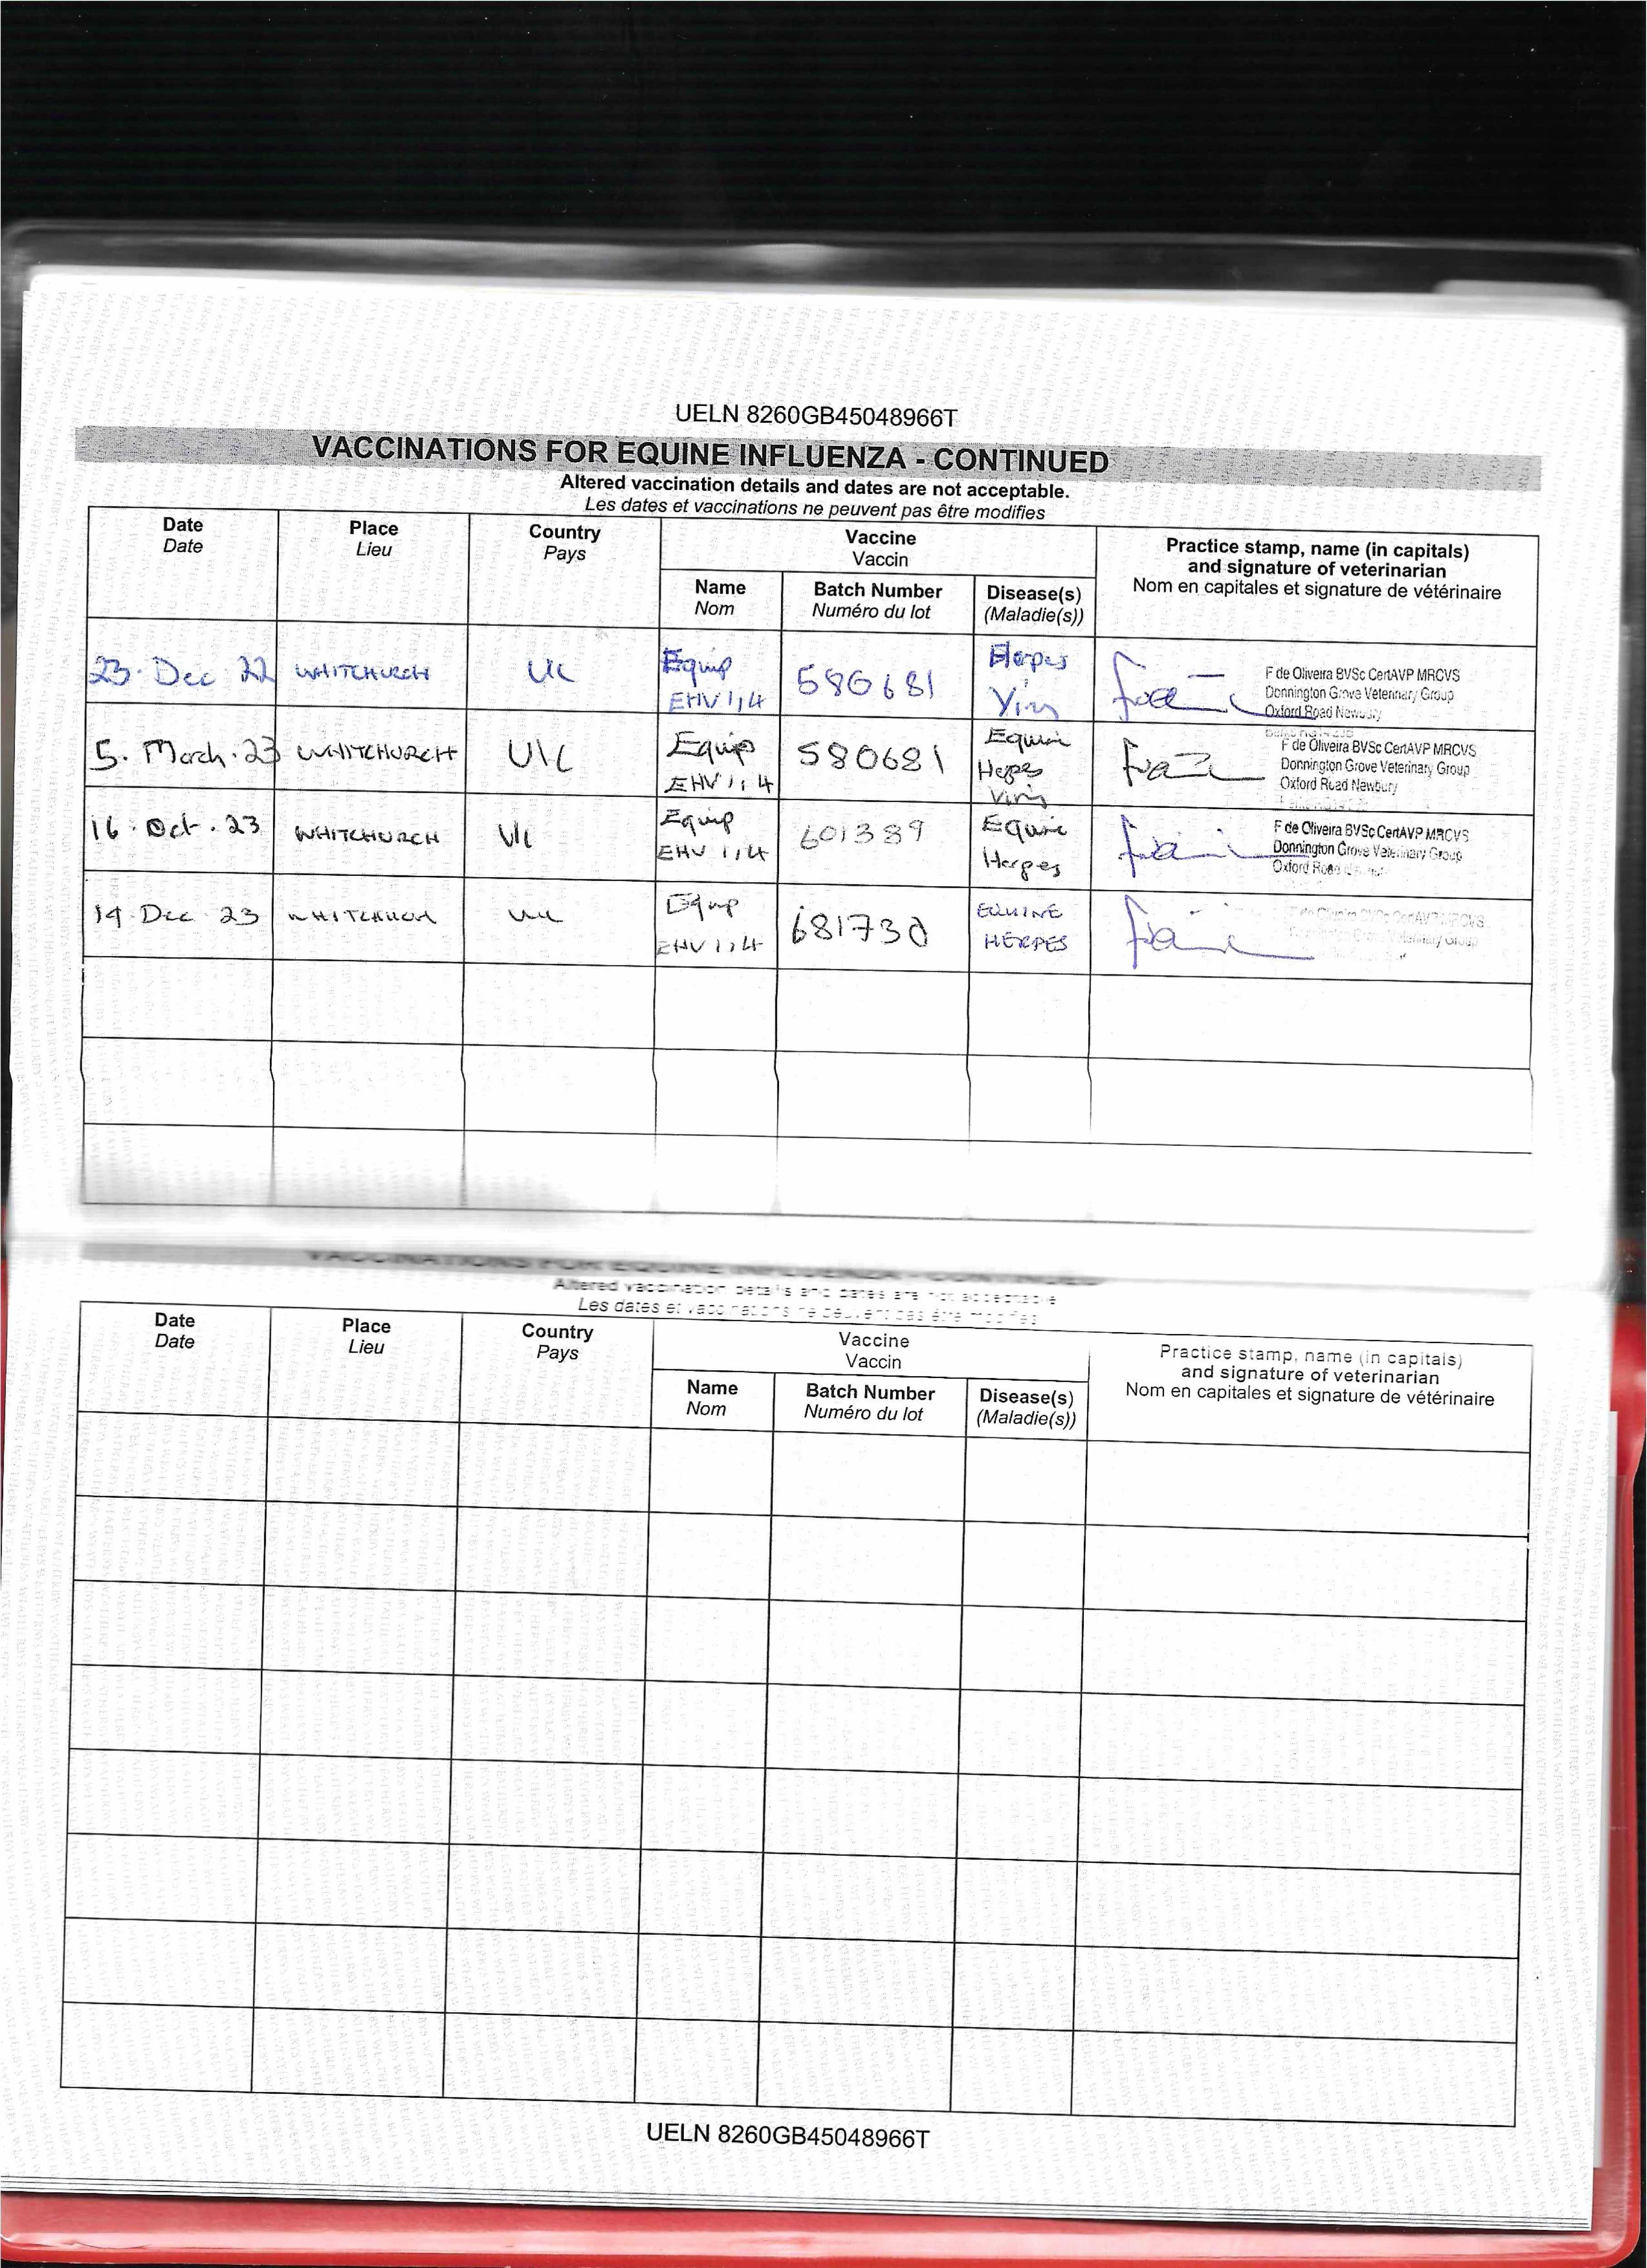 UELN 8260GB45048966T
VACCINATIONS FOR EQUINE INFLUENZA - CONTINUED
Altered vaccination details and dates are not acceptable.
Les dates et vaccinations ne peuvent pas être modifies
Date Place Country Vaccine Practice stamp, name (in capitals)
Date Lieu Pays Vaccin and signature of veterinarian
Name Batch Number Disease(s) Nom en capitales et signature de vétérinaire
Nom Numéro du lot (Maladie(s))
23. Dec 22 WHITCHURCH UK Equip 580681 Herpes F de Oliveira BVSc CertAVP MRCVS
EHV 1,4 Virus Donnington Grove Veterinary Group
Oxford Road Newbury
5. March. 23 WHITCHURCH UK Equip 580681 Equine F de Oliveira BVSc CertAVP MRCVS
EHV 1,4 Herpes Donnington Grove Veterinary Group
Virus Oxford Road Newbury
16. Oct. 23 WHITCHURCH UK Equip 601389 Equine F de Oliveira BVSc CertAVP MRCVS
EHV 1,4 Herpes Donnington Grove Veterinary Group
Oxford Road
Dec 23 WHITCHURCH UK Equip 681730 EQUINE
EHV 1,4 HERPES
VACCINATIONS FOR EQUINE INFLUENZA - CONTINUED
Altered vaccination details and dates are not acceptable
Les dates et vaccinations ne peuvent pas être modifies
Date Place Country Vaccine Practice stamp, name (in capitals)
Date Lieu Pays Vaccin and signature of veterinarian
Name Batch Number Disease(s) Nom en capitales et signature de vétérinaire
Nom Numéro du lot (Maladie(s))
UELN 8260GB45048966T